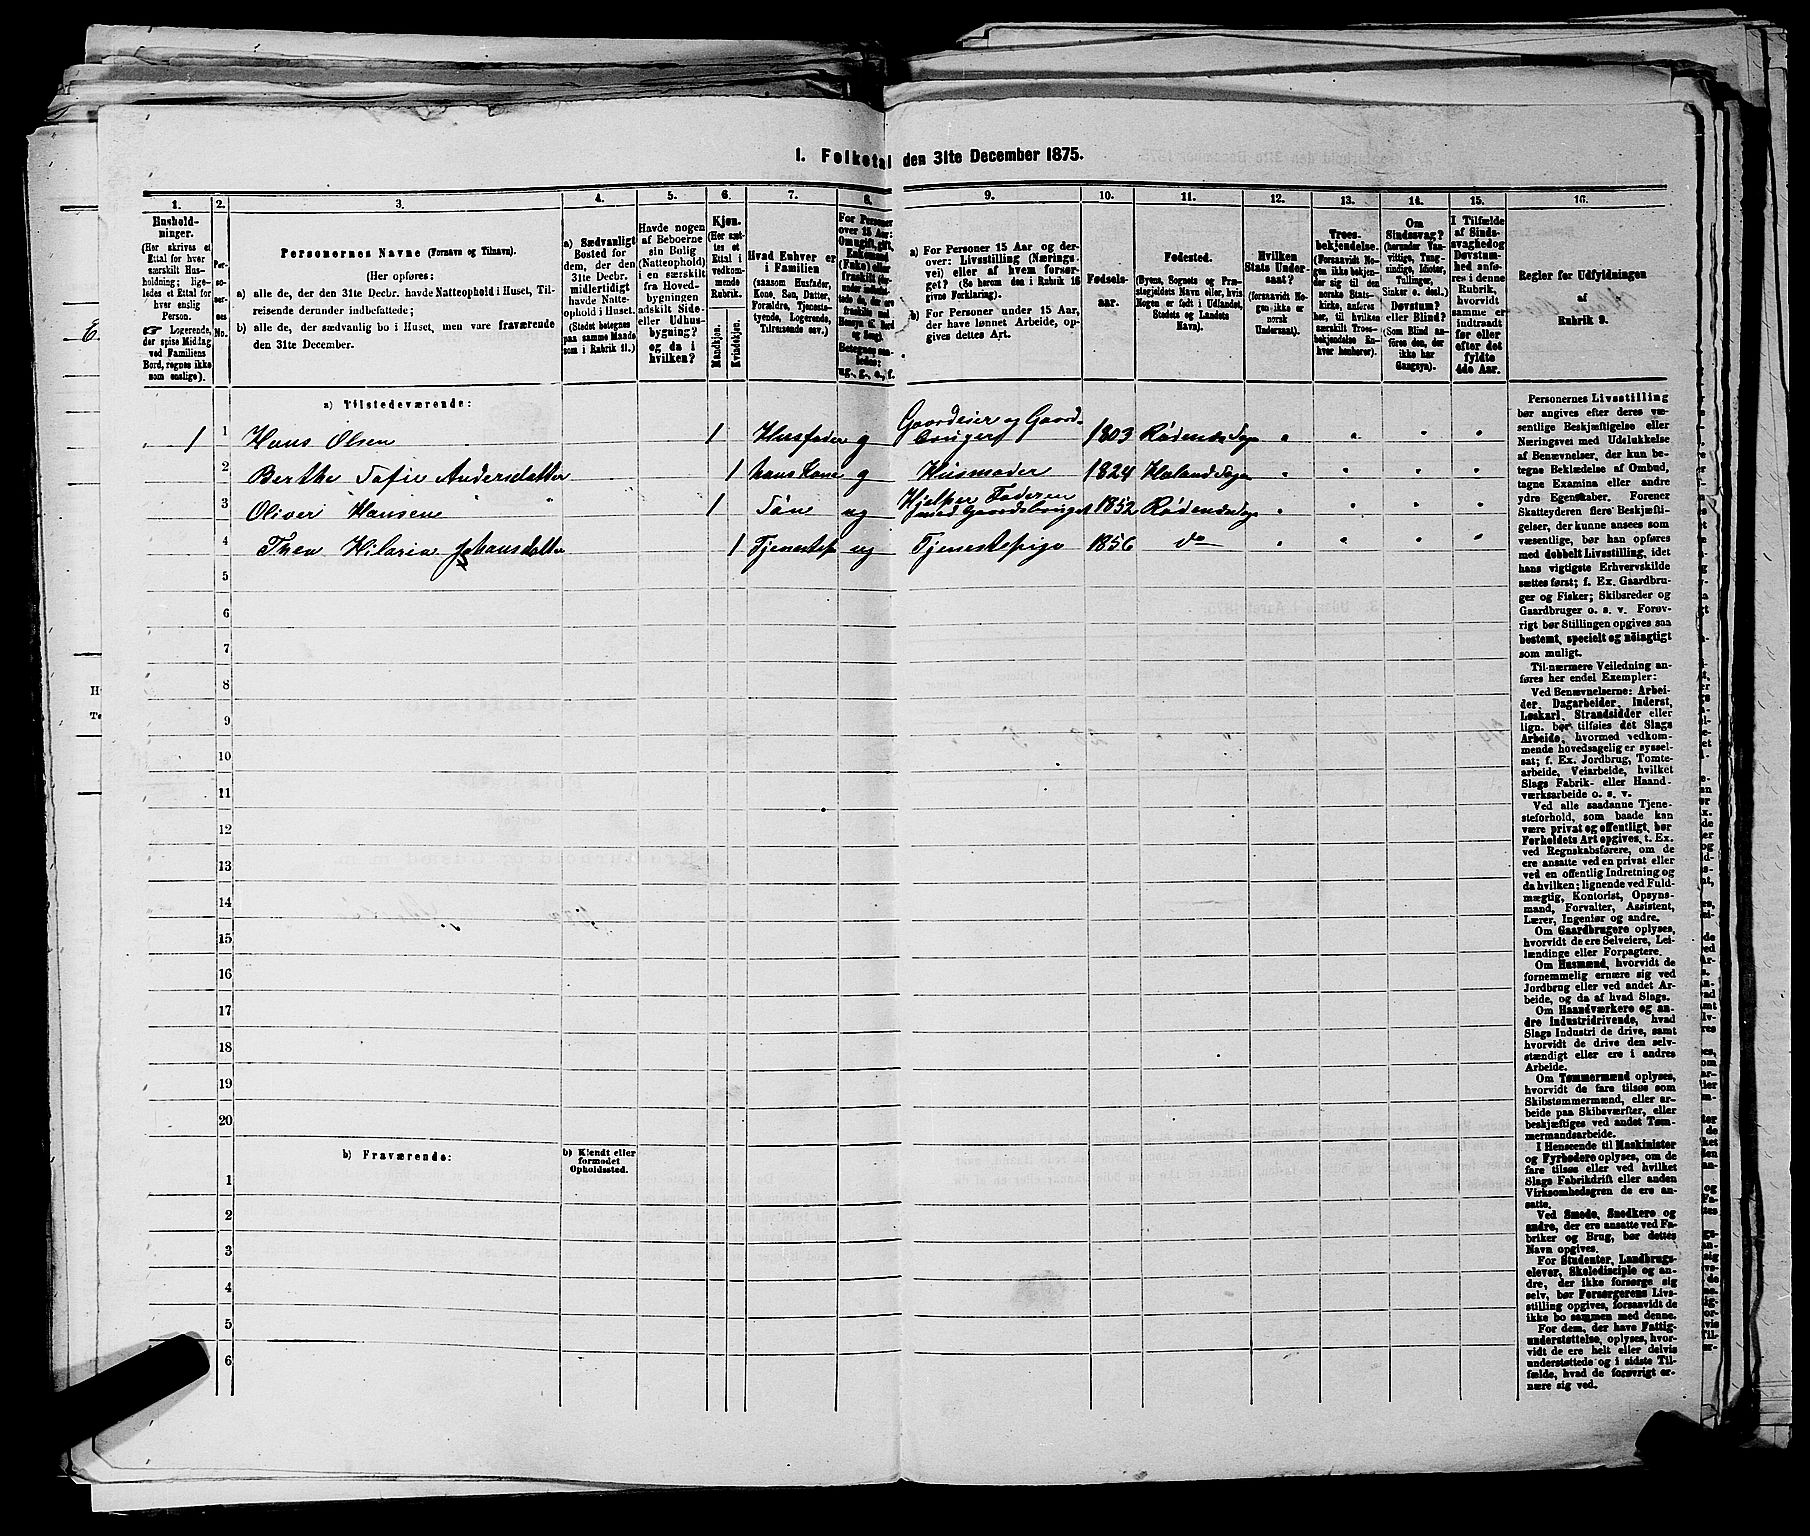 1. Folketal den 31te December 1875.
1.
2.
3.
4.
5.
6.
7.
8.
9.
10.
11.
12.
13.
14.
15.
16.
Hushold-
ninger.
(Her skrives et
Ettal for hver
særskilt Hus-
holdning; lige-
ledes et Ettal for
hver enslig
Person.
☞ Logerende,
der spise Middag
ved Familiens
Bord, regnes ikke
som enslige).
Per-
so-
ner-
nes
No.
Personernes Navne (Fornavn og Tilnavn).
(Her opføres:
a) alle de, der den 31te Decbr. havde Natteophold i Huset, Til-
reisende derunder indbefattede;
b) alle de, der sædvanlig bo i Huset, men vare fraværende
den 31te December.
a) Sædvanligt
Bosted for
dem, der den
31te Decbr.
midlertidigt
havde Natte-
ophold i Huset.
(Stedet betegnes
paa samme Maade
som i Rubrik 11.)
Havde nogen
af Beboerne
sin Bolig
(Natteophold)
i en særskilt
fra Hoved-
bygningen
adskilt Side-
eller Udhus-
bygning?
og da i
hvilken?
Kjøn.
(Her sæt-
tes et
Ettal i
vedkom-
mende
Rubrik.
Mandkjøn.
Kvindekjøn.
Hvad Enhver er
i Familien
(saasom Husfader,
Kone, Søn, Datter,
Forældre, Tjeneste-
tyende, Logerende,
Tilreisende osv.)
For Personer
over 15 Aar:
Omugift, gift,
Enkemand
(Enke) eller
fraskilt
Betegnes saa-
ledes:
ug., g., e., f.
a) For Personer 15 Aar og der-
over: Livsstilling (Nærings-
vei) eller af hvem forsør-
get? (Se herom den i Rubrik 16
givne Forklaring).
b) For Personer under 15 Aar,
der have lønnet Arbeide, op-
gives dettes Art.
Fødsels-
aar.
Fødested.
(Byens, Sognets og Præ-
stegjeldets Navn eller, hvis
Nogen er født i Udlandet,
Stedets og Landets
Navn).
Hvilken
Stats Under-
saat?
(forsaavidt No-
gen ikke er
norsk
Undersaat).
Troes-
bekjendelse.
(Forsaavidt No-
gen ikke bekjen-
der sig til den
norske Stats-
kirke, anføres
her, til hvilken
særskilt Troes-
bekjendelse En-
hver henhører).
Om
Sindssvag?
(herunder Van-
vittige, Tung-
sindige, Idioter,
Tullinger,
Sinker o. desl.)
Døvstum?
eller Blind?
(Som Blind an-
føres den, der
ikke har
Gangsyn).
I Tilfælde
af Sinds-
svaghed og
Døvstum-
hed anfø-
res i denne
Rubrik,
hvorvidt
samme er
indtraadt
før eller
efter det
fyldte
4de Aar.
Regler for Udfyldningen
af
Rubrik 9.
a) Tilstedeværende:
1 1 Hans Olsen 1 Husfader g Gaardeier og Gaard-
bruger 1803 Rødenæs Sogn " " " "
2 Berthe Sofie Andersdatter 1 hans Kone g Husmoder 1824 Høland Sogn " " " "
3 Oliver Hansen " 1 Søn ug Hjelper Faderen
med Gaardsbruget 1852 Rødenæs Sogn " " " "
4 Thea Hilaria Johansdatter 1 Tjenestep ug Tjenestepige 1856 do " " " "
5
6
7
8
9
10
11
12
13
14
15
16
17
18
19
20
b) Fraværende:
b) Kjendt eller
formodet
Opholdssted.
1
2
3
4
5
6
Personernes Livsstilling
bør angives efter deres væ-
sentlige Beskjæftigelse eller
Næringsvei med Udelukkelse
af Benævnelser, der kun be-
tegne Beklædelse af Ombud,
tagne Examina eller andre
ydre Egenskaber. Forener
Skatteyderen flere Beskjæfti-
gelser, der kunne ansees som
væsentlige, bør han opføres
med dobbelt Livsstilling, idet
hans vigtigste Erhvervskilde
sættes først; f. Ex. Gaardbru-
ger og Fisker; Skibsreder og
Gaardbruger o. s. v. Forøv-
rigt bør Stillingen opgives saa
bestemt, specielt og nöiagtigt
som muligt.
Til nærmere Veiledning an-
føres her endel Exempler:
Ved Benævnelserne: Arbei-
der, Dagarbeider, Inderst,
Løskarl, Strandsidder eller
lign. bør tilføies det Slags
Arbeide, hvormed vedkom-
mende hovedsagelig er syssel-
sat; f. Ex. Jordbrug, Tomte-
arbeide, Veiarbeide, hvilket
Slags Fabrik- eller Haand-
værksarbeide o. s. v.
Ved alle saadanne Tjene-
steforhold, som baade kan
være privat og offentligt, bør
Forholdets Art opgives, t. Ex.
ved Regnskabsførere, om de
ere ansatte ved en privat eller
ved en offentlig Indretning og
da hvilken; lignende ved Fuld-
mægtig, Kontorist, Opsyns-
mand, Forvalter, Assistent,
Lærer, Ingeniør og andre.
Om Gaardbrugere oplyses,
hvorvidt de ere Selveiere, Lei-
lændinge eller Forpagtere.
Om Husmænd, hvorvidt de
fornemmelig ernære sig ved
Jordbrug eller ved andet Ar-
beide, og da af hvad Slags.
Om Haandværkere og an-
dre industridrivende, hvad
Slags Industri de drive, samt
hvorvidt de drive den selv-
stændigt eller ere i andres
Arbeide.
Om Tømmermænd oplyses,
hvorvidt de fare tilsøs som
Skibstømmermænd, eller ar-
beide paa Skibsværfter, eller
beskjæftiges ved andet Tøm-
mermandsarbeide.
I Henseende til Maskinister
og Fyrbødere oplyses, om de
fare tilsøs eller ved hvilket
Slags Fabrikdrift eller anden
Virksomhedsgren de ere an-
satte.
Ved Smede, Snedkere og
andre, der ere ansatte ved Fa-
briker og Brug, bør dettes
Navn opgives.
For Studenter, Landbrugs-
elever, Skoledisciple og an-
dre, der ikke forsørge sig
selv, bør Forsørgerens Livs-
stilling opgives, forsaavidt de
ikke bo sammen med denne.
For dem, der have Fattig-
understøttelse, oplyses, hvor-
vidt de ere helt eller delvis
understøttede og i sidste Til-
fælde, hvad de forøvrigt er-
nære sig ved.